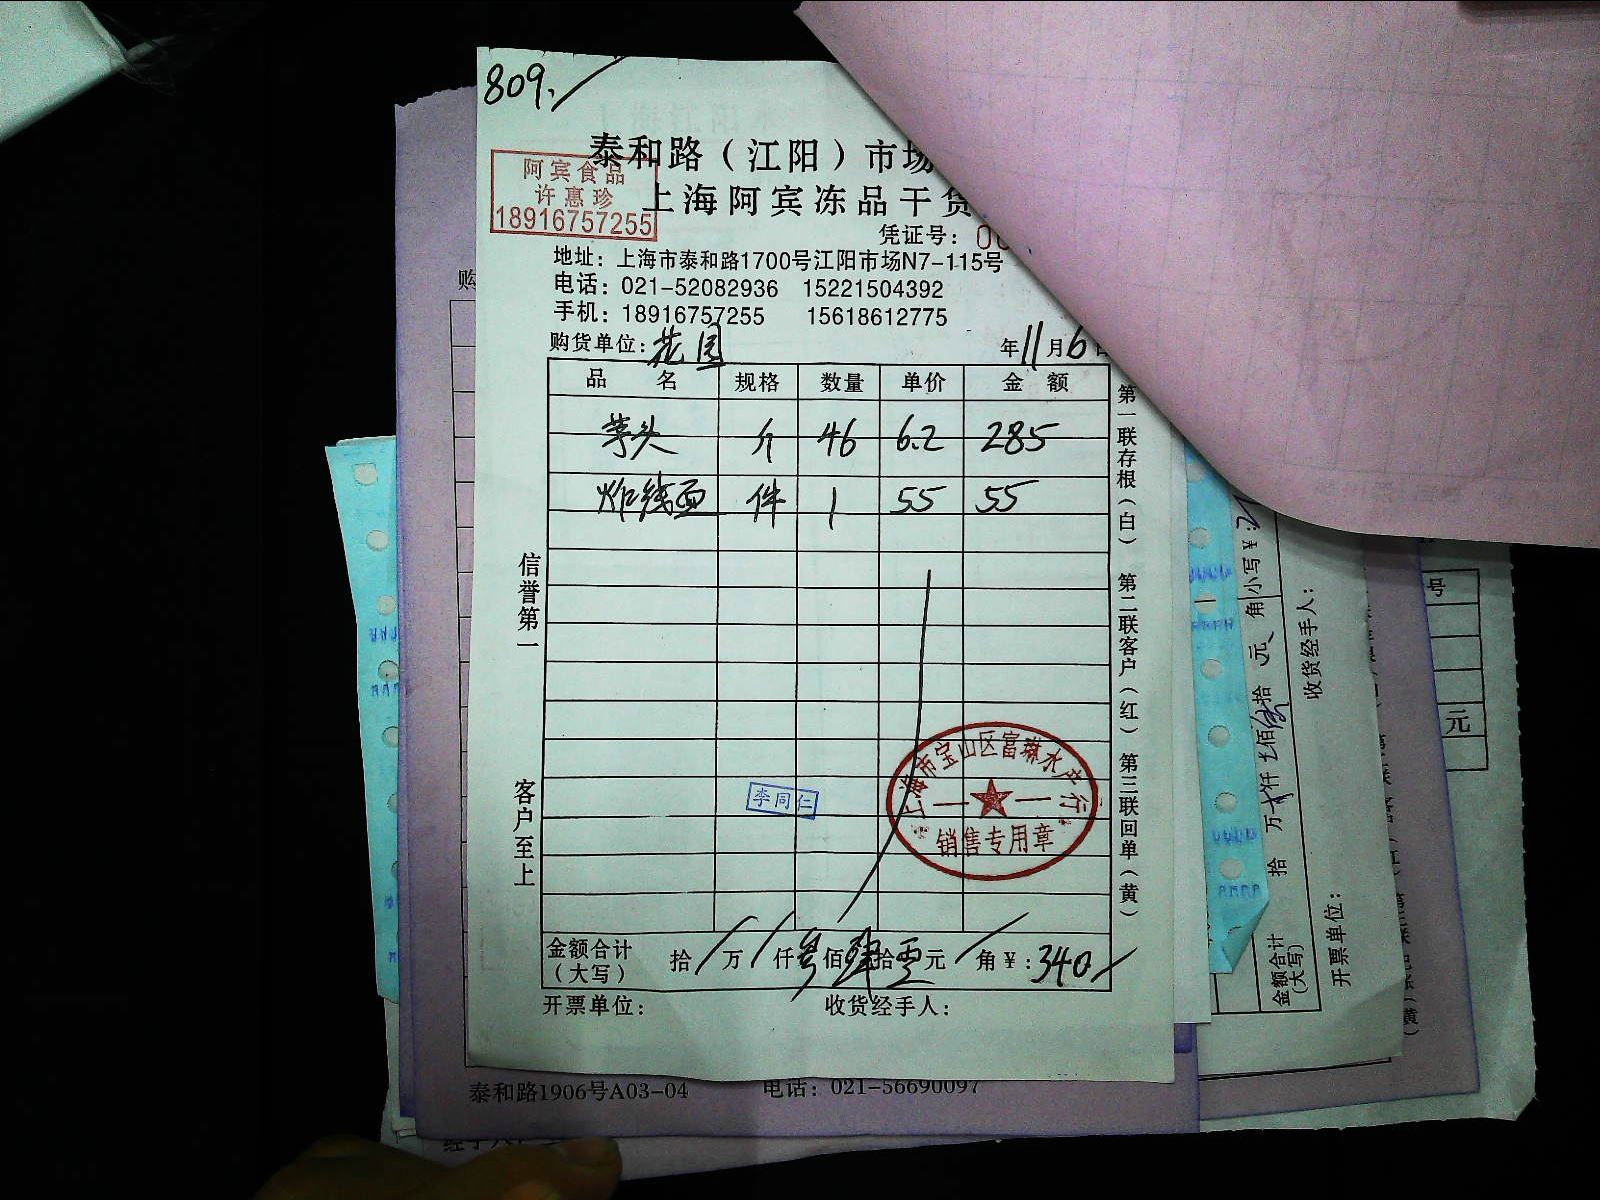 809.
泰和路（江阳）市场
上海阿宾冻品干货
阿宾食品
许惠珍
18916757255
凭证号：00
地址：上海市泰和路1700号江阳市场N7-115号
电话：021-52082936 15221504392
手机：18916757255 15618612775
购货单位：花园 年11月6日
品名 规格 数量 单价 金额
芋头 斤 46 6.2 285
炸线面 件 1 55 55
信誉第一
客户至上
第一联存根（白） 第二联客户（红） 第三联回单（黄）
李同仁
上海市宝山区富琳水产行
销售专用章
金额合计（大写） 拾 万 仟 叁 佰 肆 拾 零 元 角 ¥：340
开票单位： 收货经手人：
泰和路1906号A03-04 电话：021-56690097
购
小写¥：
金额合计（大写） 拾 万 仟 佰 拾 元 角
收货经手人：
开票单位：
号
元